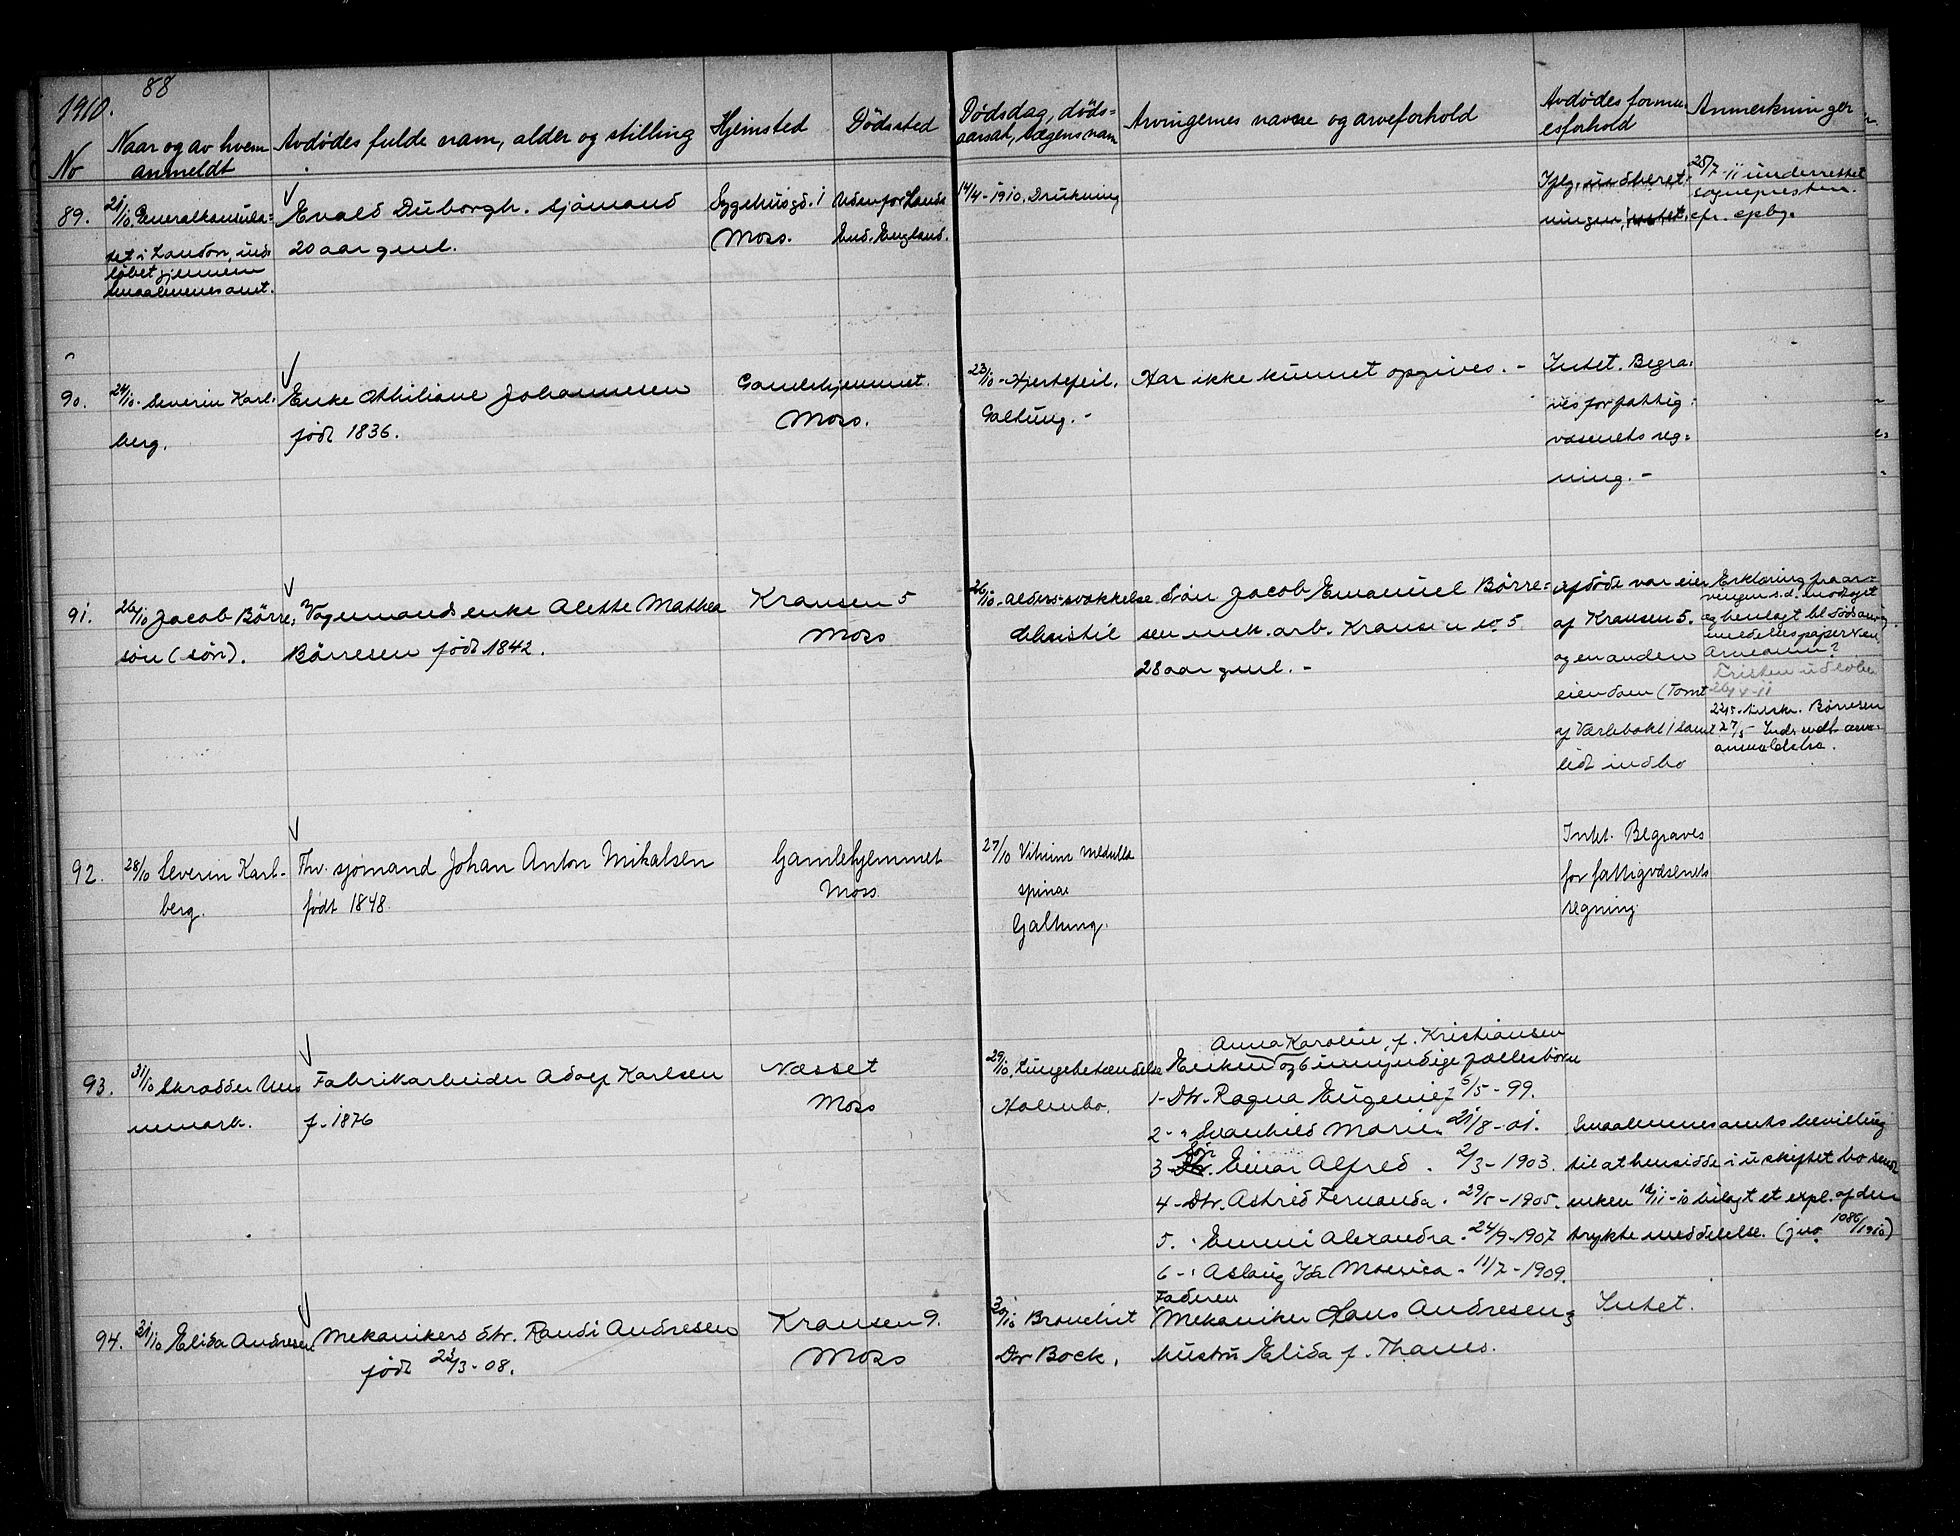 1910.
88
No
Naar og av hvem
anmeldt
Avdødes fulde navn, alder og stilling
Hjemsted
Dødssted
Dødsdag, døds=
aarsak, lægens navn
Arvingernes navne og arveforhold
Avdødes formu-
esforhold
Anmerkninger
89.
21/10. Generalkonsula=
tet i London, ind=
løbet gjennem
Smaalenenes amt.
Evald Duborgh. Sjømand
20 aar gml.
Sygehusgd. 1
Moss.
Udenfor Lands
End. England.
14/4-1910. Drukning
Iflg. indberet=
ningen intet.
25/7-11 underrettet
sognepresten.
cfr. cpbg.
90.
24/10. Severin Karl=
berg.
Enke Athiliane Johannesen
født 1836.
Gamlehjemmet.
Moss.
23/10 - Hjertefeil.
Galtung. -
Har ikke kunnet opgives. -
Intet. Begra=
ves for fattig=
væsenets reg=
ning. -
91.
26/10 Jacob Børre=
sen (søn).
Vognmands enke Alette Mathea
Børresen født 1842.
Kransen 5
Moss
26/10. Aldersvækkelse
Christie
Søn Jacob Emanuel Børre=
sen mek. arb. Kransen no. 5
28 aar gml. -
Afdøde var eier
af Kransen 5.
og en anden
eiendom (Tomt
af Varlebakk) samt
lidt indbo
Erklæring fra ar=
vingen s.d. modtaget
og henlagt bl. dødsan=
meldelsespaperne
Fristen udløber
26/4-11
Børresen
27/5
92.
28/10 Severin Karl-
berg.
Fhv. sjømand Johan Anton Mikalsen
født 1848.
Gamlehjemmet
Moss
27/10 Vitium medulla
spinae
Galtung.
Intet. Begraves
for fattigvæsenets
regning
93.
31/10 Skrædder
Fabrikarbeider Adolf Karlsen
f. 1876
Næsset
Moss
29/10. Lungebetændelse
Holmbo.
Anna Karoline, f. Kristiansen
Enken og 6 umyndige fællesbørn
1- Dtr. Ragna Eugenie f. 5/5-99.
2- " Svanhild Marie. 21/8-01.
3- Søn Einar Alfred. 2/3-1903.
4- Dtr. Astrid Fernanda. 29/5-1905.
5. " Emmi Alexandra. 24/9-1907
6- " Aslaug Ida - 11/7-1909.
Smaalenenes amts bevilling
til at hensidde i uskiftet bo sendt
enken 10/11-10 bilagt et expl. af den
trykte meddelelse. (jno. 1086/1910)
94.
31/10 Elida Andresen
Mekanikers dtr. Randi Andresen
født 23/3-08.
Kransen 9.
Moss
30/10 Bronchit
Dr Bock.
Faderen
Mekaniker Hans Andresen og
hustru Elida f. Thanes.
Intet.